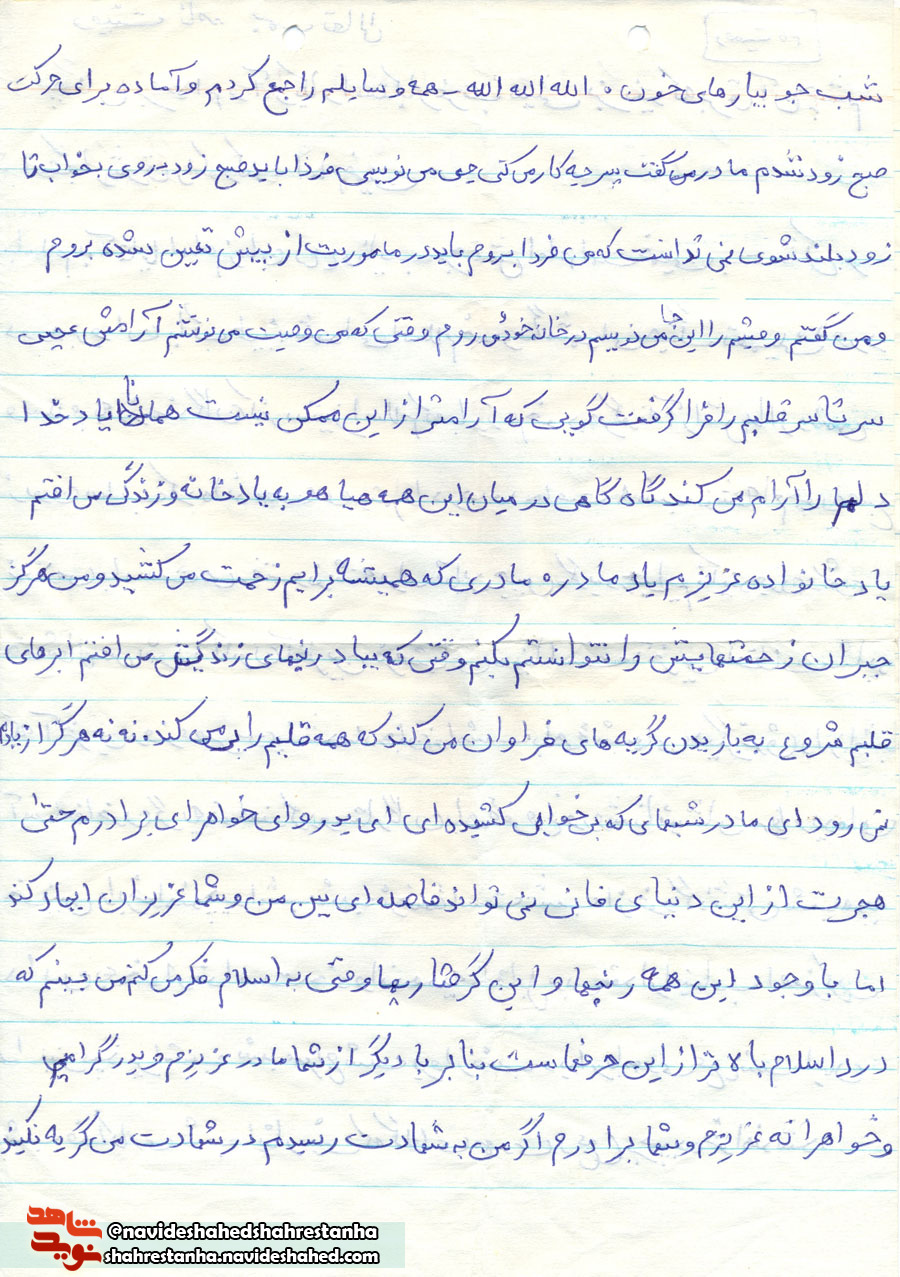 شب جو بیارهای خون . الله الله الله – همه وسایلم را جمع کردم و آماده برای حرکت
صبح زود شدم مادرم می گفت پسر چه کار می کنی چی می نویسی فردا باید صبح زود بروی بخواب تا
زود بلند شوی نمی توانست که من فردا بروم باید در ماموریت از پیش تعیین شده بروم
و من گفتم و میشم را این جا می نویسم در خانه خودم روم وقتی که من وصیت می نوشتم آرامش عجیبی
سرتاسر قلبم را فرا گرفت گویی که آرامتر از این ممکن نیست همانا با یاد خدا
دلها را آرام می کند گاه گاهی در میان این همه هیاهو به یاد خانه و زندگی می افتم
یاد خانواده عزیزم یاد مادرم مادری که همیشه برایم زحمت می کشید و من هرگز
جبران زحمتهایش را نتوانستم بکنم وقتی که بیاد رنجهای زندگیش می افتم ابرهای
قلبم شروع به باریدن گریه های فراوان می کند که همه قلبم را می کند. نه نه هرگز از یادم
نمی رود ای مادر شبهای که بی خوابی کشیده ای ای پدر و ای خواهر ای برادرم حتی
هجرت از این دنیای فانی نمی تواند فاصله ای بین من و شما عزیزان ایجاد کند
اما با وجود این همه رنجها و این گرفتاریها وقتی به اسلام فکر می کنم می بینم که
درد اسلام بالاتر از این حرفهاست بنابر با دیگر از شما مادر عزیزم و پدر گرامی
و خواهرانه عزیزم و شما برادرم اگر من به شهادت رسیدم در شهادت من گریه نکنید
شاهد
نوید
@navideshahedshahrestanha
shahrestanha.navideshahed.com